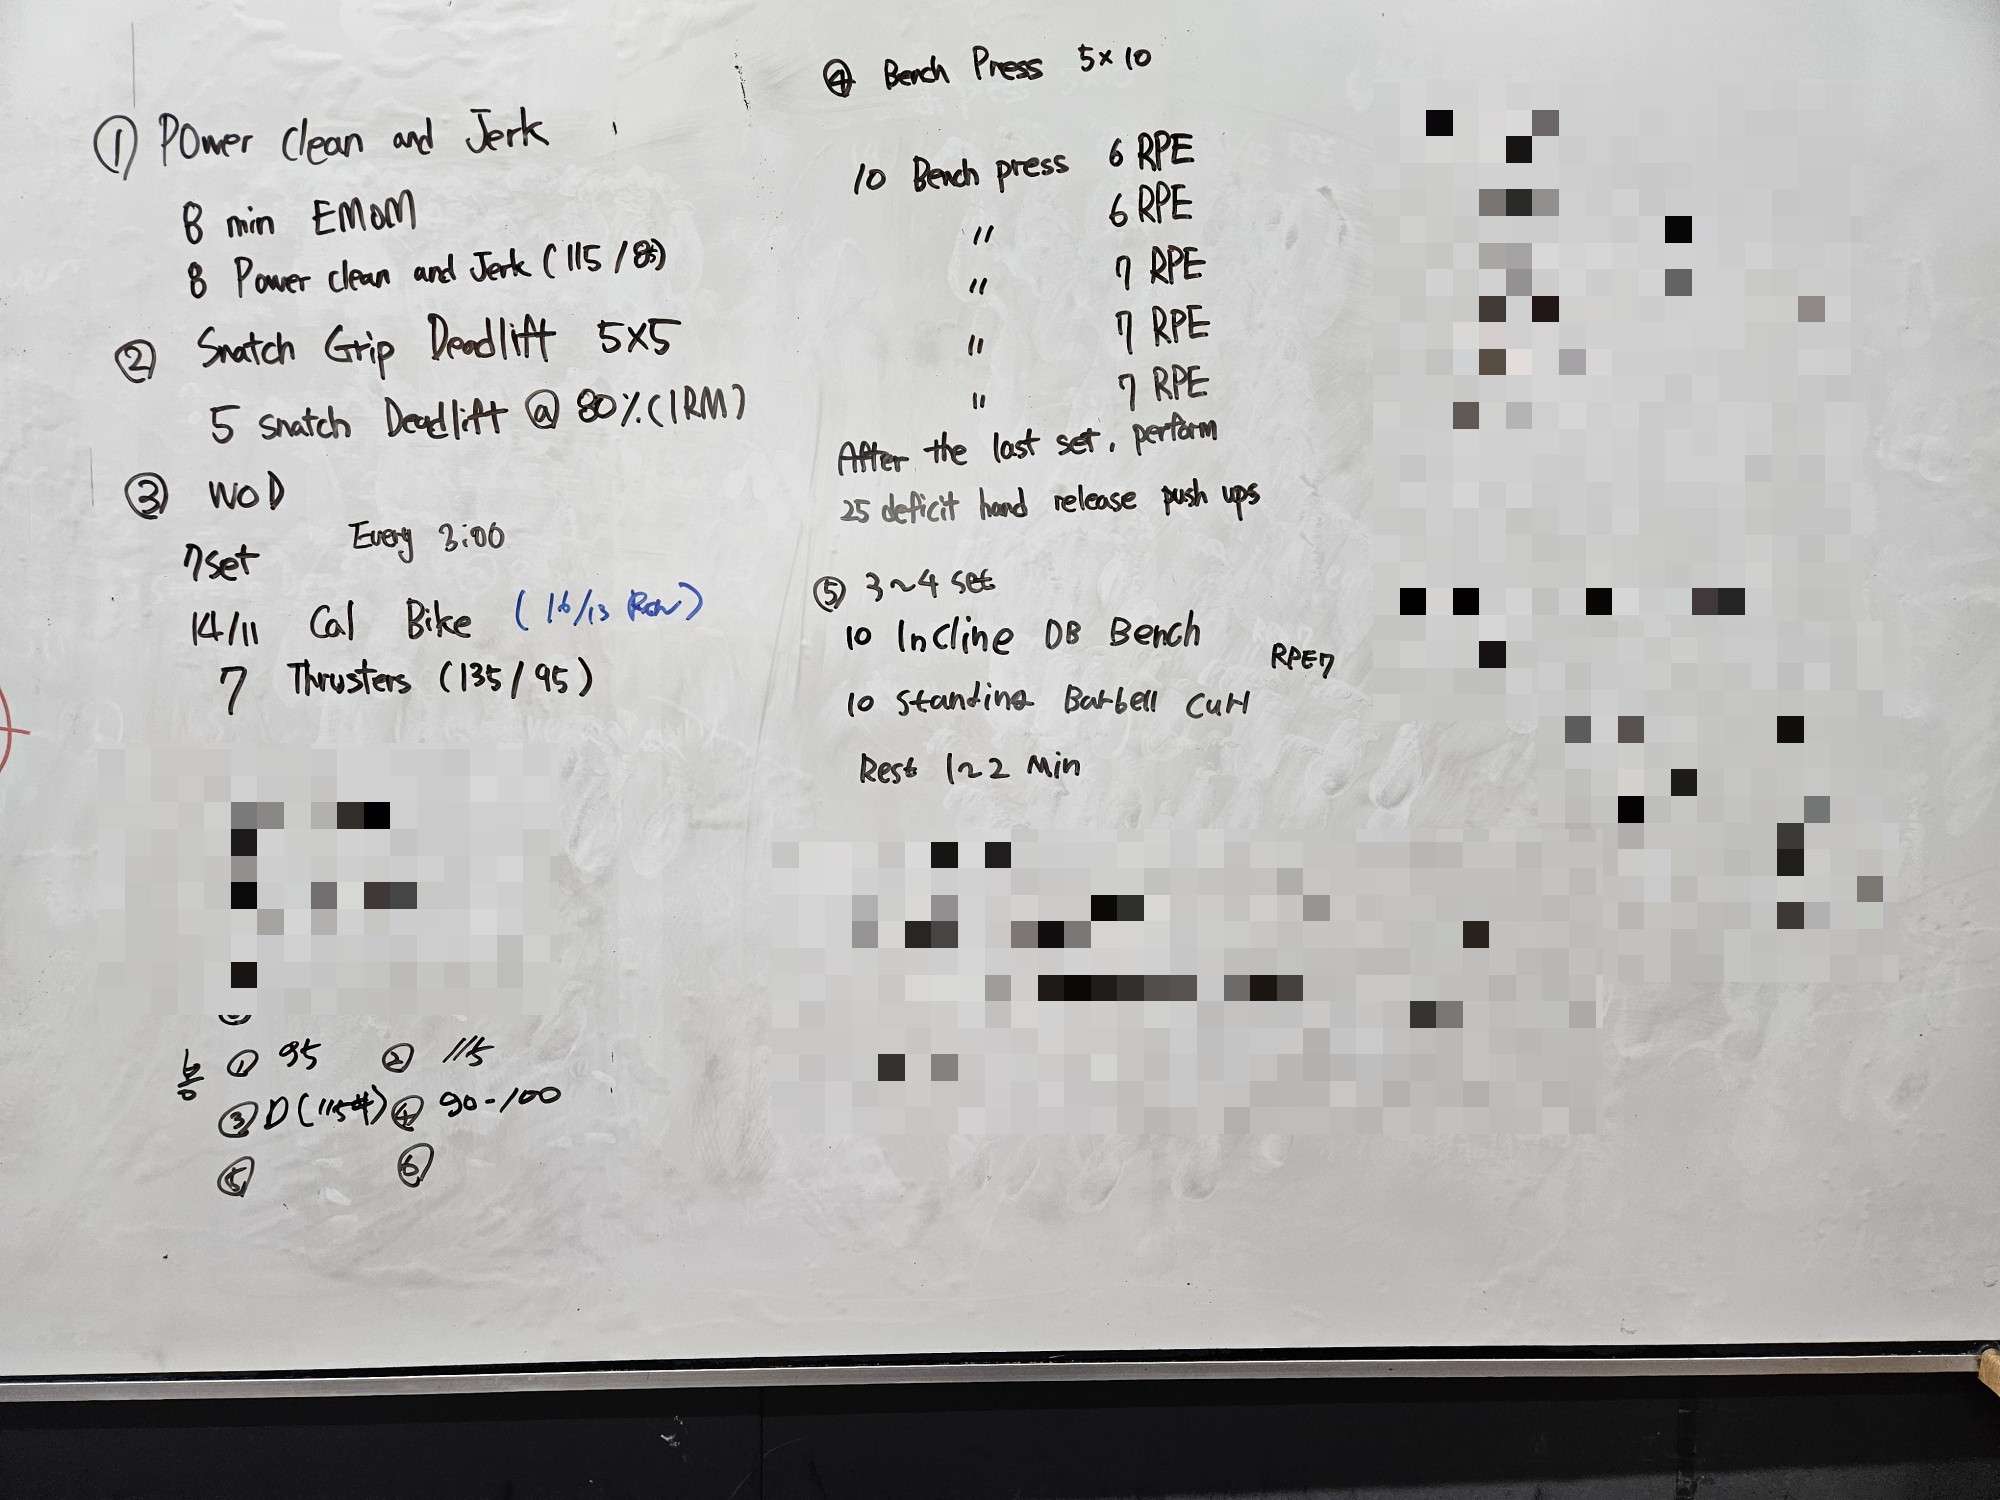 ① Power clean and Jerk
8 min EMOM
8 Power clean and Jerk (115/85)
② Snatch Grip Deadlift 5×5
5 snatch Deadlift @ 80% (1RM)
③ WOD
7set Every 3:00
14/11 Cal Bike (16/13 Row)
7 Thrusters (135/95)
봉 ① 95 ② 115
③ D(115#) ④ 90-100
⑤ ⑥
④ Bench Press 5×10
10 Bench press 6 RPE
〃 6 RPE
〃 7 RPE
〃 7 RPE
〃 7 RPE
After the last set, perform
25 deficit hand release push ups
⑤ 3~4 set
10 Incline DB Bench
RPE7
10 Standing Barbell Curl
Rest 1~2 Min